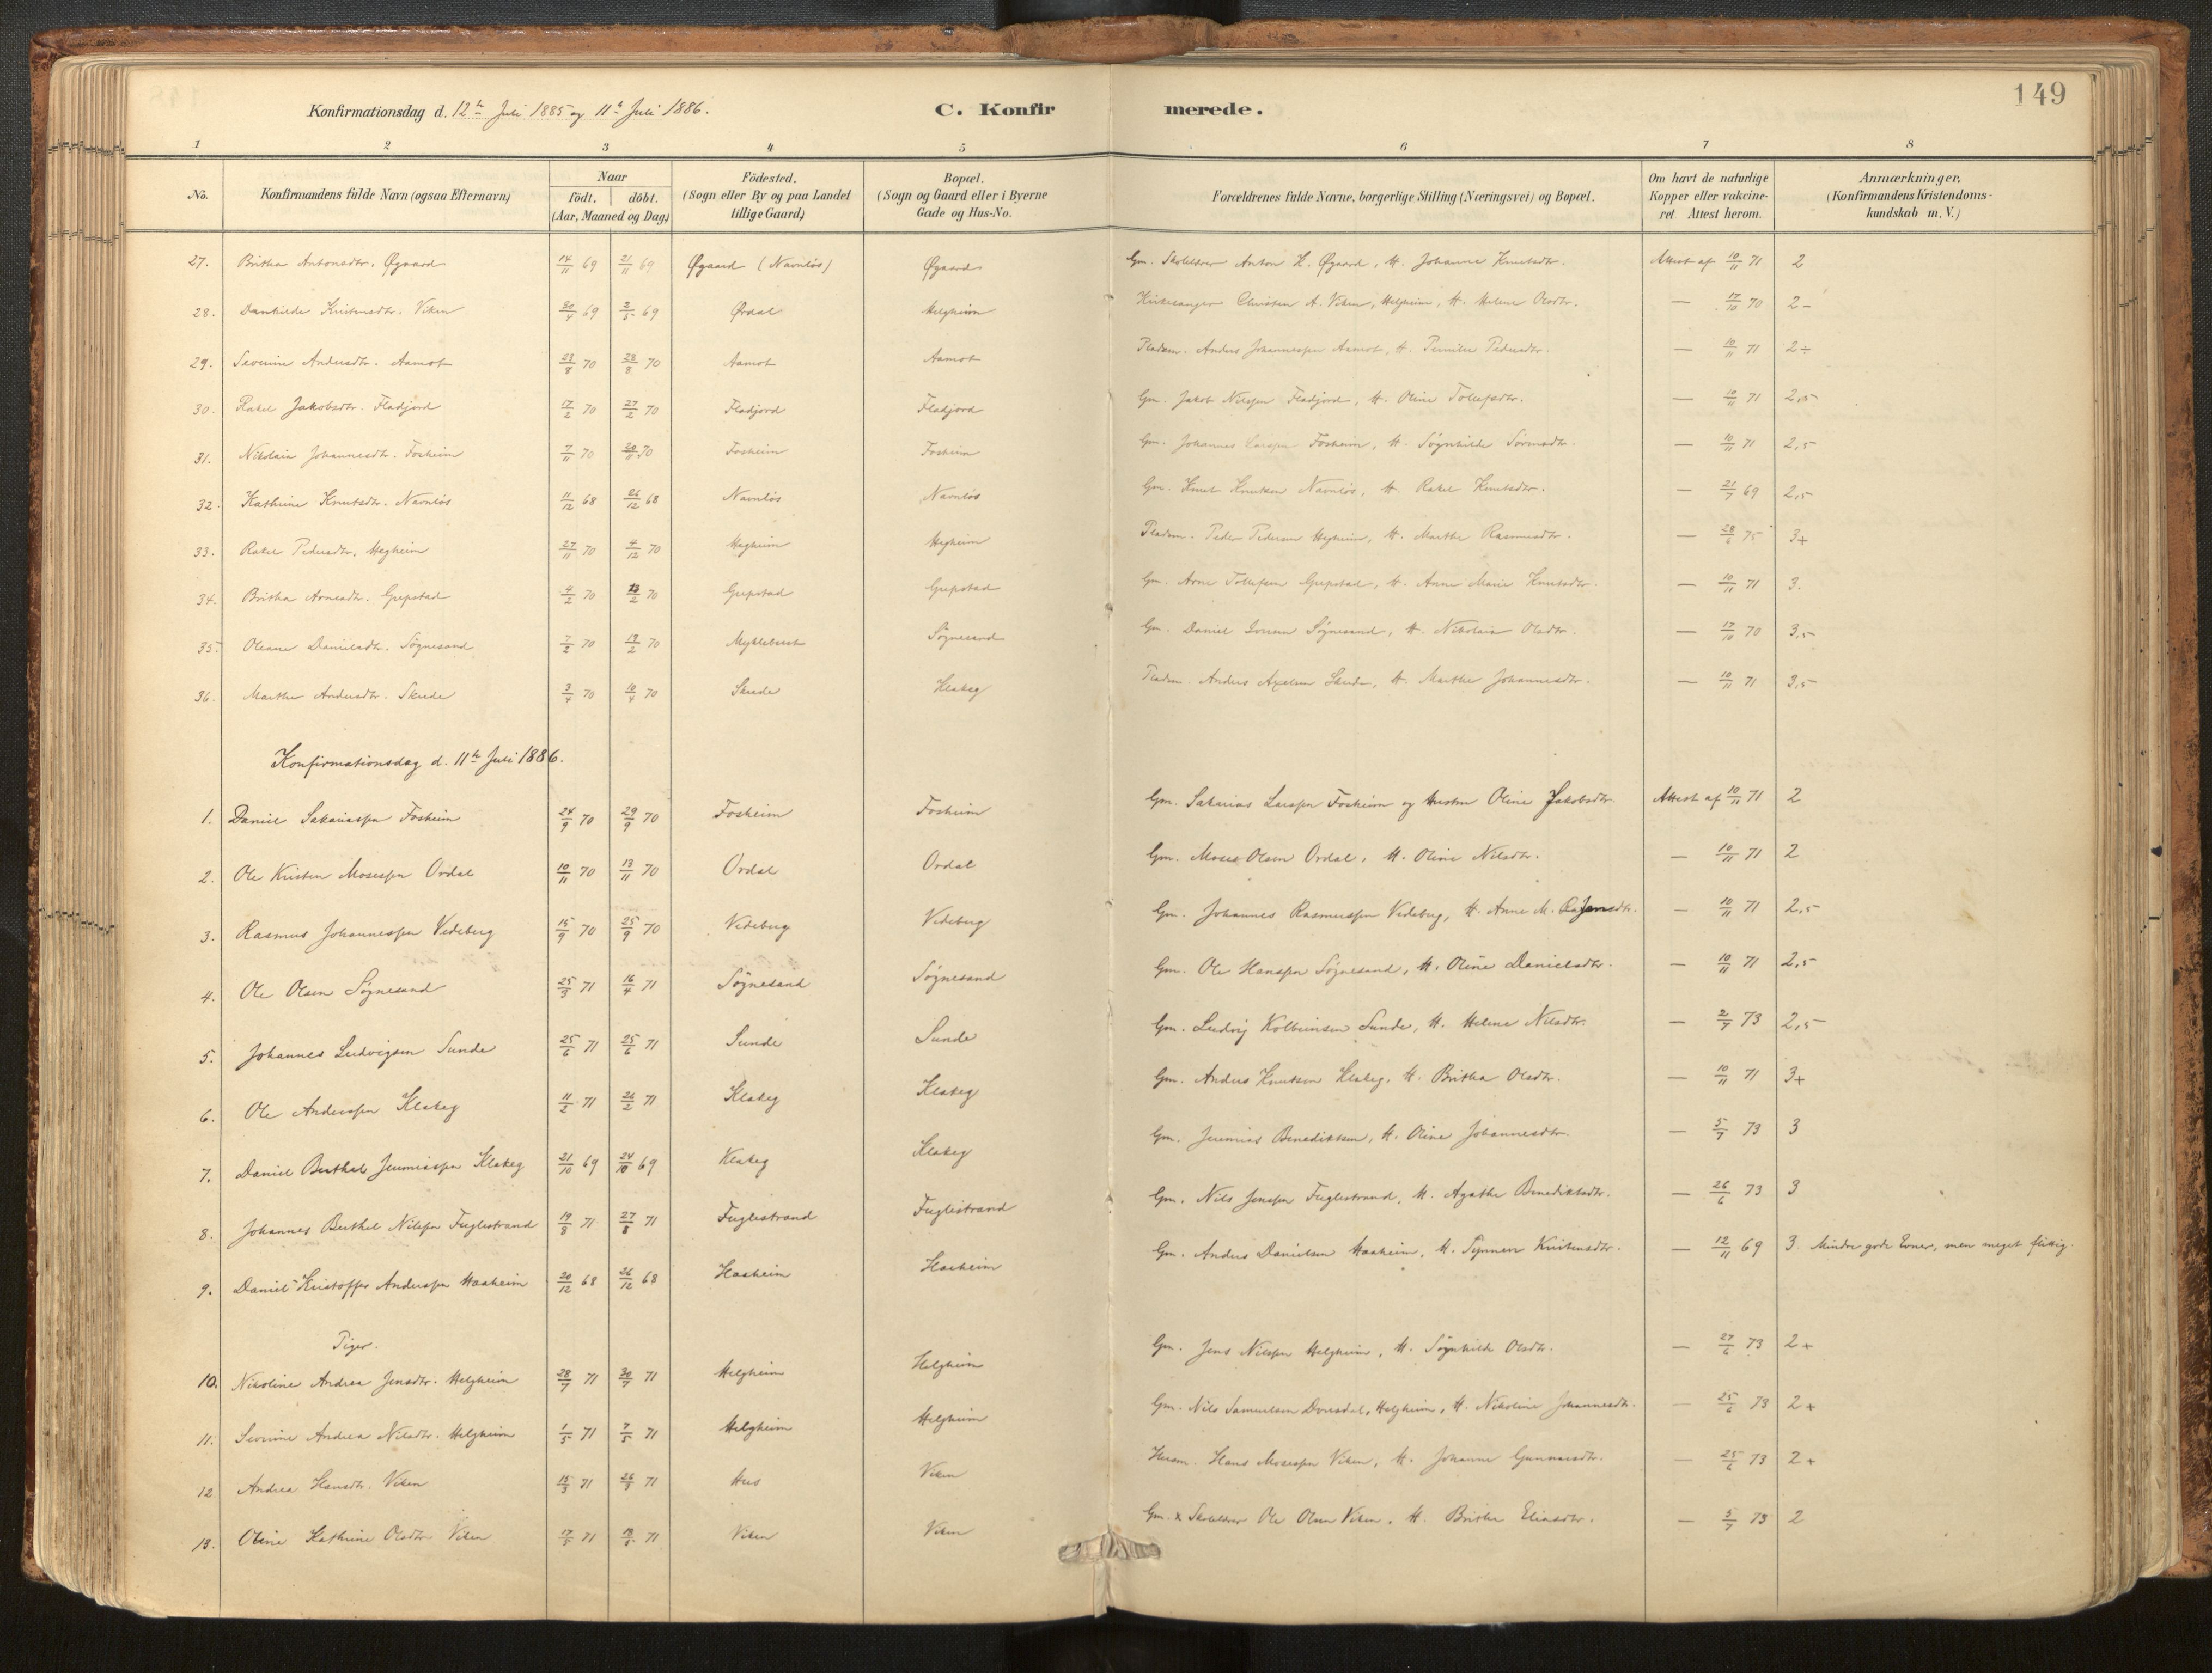 149
Konfirmationsdag d. 12te Juli 1885 og 11te Juli 1886.
C. Konfirmerede.
1 2 3 4 5 6 7 8
No. Konfirmandens fulde Navn (ogsaa Efternavn) Naar födt. döbt. (Aar, Maaned og Dag) Födested. (Sogn eller By og paa Landet tillige Gaard) Bopæl. (Sogn og Gaard eller i Byerne Gade og Hus-No. Forældrenes fulde Navne, borgerlige Stilling (Næringsvei) og Bopæl. Om havt de naturlige Kopper eller vakcineret Attest herom. Anmærkninger, (Konfirmandens Kristendomskundskab m. V.)
27. Britha Antonsdtr. Øgaard 14/11 69 21/11 69 Øgaard (Navnløs) Øgaard Gm. Skolelærer Anton K. Øgaard, H. Johanne Knutsdtr. Attest af 10/11 71 2
28. Danhilde Kristensdtr. Viken 30/4 69 2/5 69 Ørdal Helgheim Kirkesanger Christen A. Viken, Helgheim, H. Helene Olsdtr. — 17/10 70 2-
29. Severine Andersdtr. Aamot 23/8 70 28/8 70 Aamot Aamot Pladsm. Anders Johannessen Aamot, H. Pernille Pedersdtr. — 10/11 71 2÷
30. Rakel Jakobsdtr. Fladjord 17/2 70 27/2 70 Fladjord Fladjord Gm. Jakob Nilssen Fladjord, H. Oline Tollefsdtr. — 10/11 71 2,5
31. Nikolaia Johannesdtr. Fosheim 7/11 70 20/11 70 Fosheim Fosheim Gm. Johannes Larssen Fosheim, H. Søgnhilde — 10/11 71 2,5
32. Kathrine Knutsdtr. Navnløs 11/12 68 26/12 68 Navnløs Navnløs Gm. Knut Knutsen Navnløs, H. Rakel Knutsdtr. — 21/7 69 2,5
33. Rakel Pedersdtr. Hegheim 27/11 70 4/12 70 Hegheim Hegheim Pladsm. Peder Pedersen Hegheim, H. Marthe Rasmusdtr. — 28/6 75 3+
34. Britha Arnesdtr. Grepstad 4/2 70 13/2 70 Grepstad Grepstad Gm. Arne Tollefsen Grepstad, H. Anne Marie Knutsdtr. — 10/11 71 3.
35. Oleane Danielsdtr. Søgnesand 7/2 70 13/2 70 Myklebust Søgnesand Gm. Daniel Søgnesand, H. Nikolaia Olsdtr. — 17/10 70 3,5
36. Marthe Andersdtr. Skrede 3/4 70 10/4 70 Skrede Klakeg Pladsm. Anders Axelsen Skrede, H. Marthe Johannesdtr. — 10/11 71 3,5
Konfirmationsdag d. 11te Juli 1886.
1. Daniel Sakariassen Fosheim 24/9 70 29/9 70 Fosheim Fosheim Gm. Sakarias Larssen Fosheim og Hustru Oline Jakobsdtr. Attest af 10/11 71 2
2. Ole Kristen Mosessen Ordal 10/11 70 13/11 70 Ordal Ordal Gm. Moses Olsen Ordal, H. Oline Nilsdtr. — 10/11 71 2
3. Rasmus Johannessen Vedeberg 15/9 70 25/9 70 Vedeberg Vedeberg Gm. Johannes Rasmussen Vedeberg, H. Anne M. Jensdtr. — 10/11 71 2,5
4. Ole Olsen Søgnesand 25/3 71 16/4 71 Søgnesand Søgnesand Gm. Ole Hanssen Søgnesand, H. Oline Danielsdtr. — 10/11 71 2,5
5. Johannes Ludvigsen Sunde 25/6 71 25/6 71 Sunde Sunde Gm. Ludvig Kolbeinsen Sunde, H. Helene Nilsdtr. — 2/7 73 2,5
6. Ole Anderssen Klakeg 11/2 71 26/2 71 Klakeg Klakeg Gm. Anders Knutsen Klakeg, H. Britha Olsdtr. — 10/11 71 3+
7. Daniel Berthel Jeremiassen Klakeg 21/10 69 24/10 69 Klakeg Klakeg Gm. Jeremias Benediktsen, H. Oline Johannesdtr. — 5/7 73 3
8. Johannes Berthel Nilssen Fuglestrand 19/8 71 27/8 71 Fuglestrand Fuglestrand Gm. Nils Jenssen Fuglestrand, H. Agathe Benediktsdtr. — 26/6 73 3
9. Daniel Kristoffer Anderssen Haaheim 20/12 68 26/12 68 Haaheim Haaheim Gm. Anders Danielsen Haaheim, H. Synneve Kristensdtr. — 12/11 69 3. Mindre gode Evner, men meget flittig.
Piger.
10. Nikoline Andrea Jensdtr. Helgheim 28/7 71 30/7 71 Helgheim Helgheim Gm. Jens Nilssen Helgheim, H. Søgnhilde Olsdtr. — 27/6 73 2+
11. Severine Andrea Nilsdtr. Helgheim 1/5 71 7/5 71 Helgheim Helgheim Gm. Nils Samuelsen Dvergsdal, Helgheim, H. Nikoline Johannesdtr. — 25/6 73 2+
12. Andrea Hansdtr. Viken 15/3 71 26/3 71 Hus Viken Husm. Hans Mosessen Viken, H. Johanne Gunnarsdtr. — 25/6 73 2+
13. Oline Kathrine Olsdtr. Viken 17/5 71 71 Viken Viken Gm. & Skolelærer Ole Olsen Viken, H. Brithe Eliasdtr. — 5/7 73 2